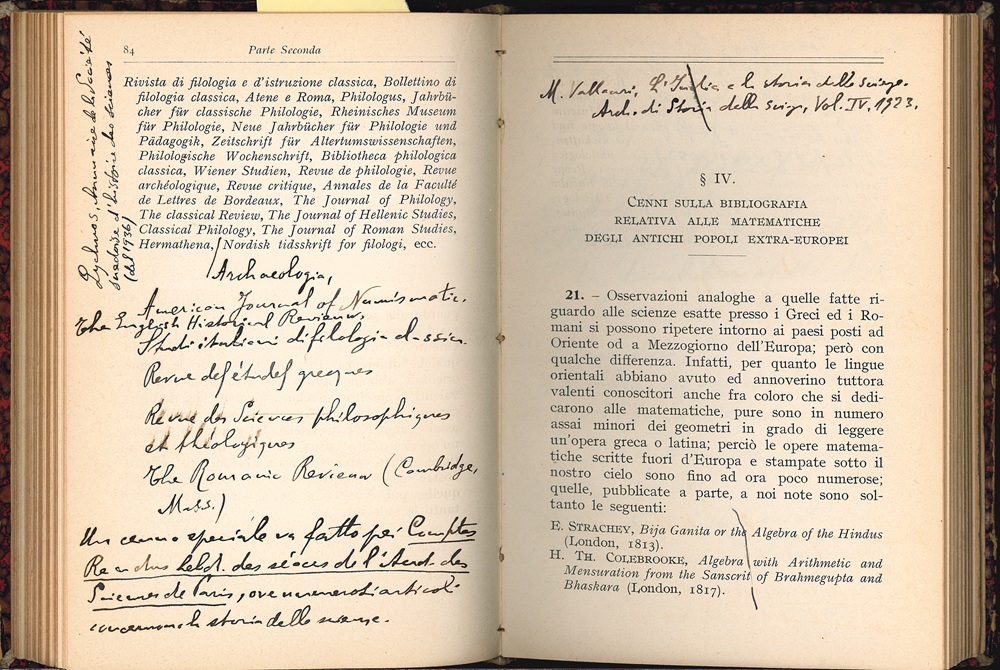 84
Parte Seconda
Rivista di filologia e d'istruzione classica, Bollettino di
filologia classica, Atene e Roma, Philologus, Jahrbü-
cher für classische Philologie, Rheinisches Museum
für Philologie, Neue Jahrbücher für Philologie und
Pädagogik, Zeitschrift für Altertumswissenschaften,
Philologische Wochenschrift, Bibliotheca philologica
classica, Wiener Studien, Revue de philologie, Revue
archéologique, Revue critique, Annales de la Faculté
de Lettres de Bordeaux, The Journal of Philology,
The classical Review, The Journal of Hellenic Studies,
Classical Philology, The Journal of Roman Studies,
Hermathena, Nordisk tidsskrift for filologi, ecc.
Lychnos, Annuaire de la Société
suédoise d'histoire des sciences
(dal 1936)
Archaeologia,
American Journal of Numismatic,
The English Historical Review,
Studi italiani di filologia classica.
Revue des études grecques
Revue des Sciences philosophiques
et théologiques
The Romanic Review (Cambridge,
Mass.)
Un cenno speciale va fatto pei Comptes
Rendus hebd. des séances de l'Acad. des
Sciences de Paris, ove numerosi articoli
concernono la storia delle scienze.
M. Vallauri, L'India e la storia delle scienze.
Arch. di Storia della Scienza, Vol. IV, 1923.
§ IV.
CENNI SULLA BIBLIOGRAFIA
RELATIVA ALLE MATEMATICHE
DEGLI ANTICHI POPOLI EXTRA-EUROPEI
21. – Osservazioni analoghe a quelle fatte ri-
guardo alle scienze esatte presso i Greci ed i Ro-
mani si possono ripetere intorno ai paesi posti ad
Oriente od a Mezzogiorno dell'Europa; però con
qualche differenza. Infatti, per quanto le lingue
orientali abbiano avuto ed annoverino tuttora
valenti conoscitori anche fra coloro che si dedi-
carono alle matematiche, pure sono in numero
assai minori dei geometri in grado di leggere
un'opera greca o latina; perciò le opere matema-
tiche scritte fuori d'Europa e stampate sotto il
nostro cielo sono fino ad ora poco numerose;
quelle, pubblicate a parte, a noi note sono sol-
tanto le seguenti:
E. STRACHEY, Bija Ganita or the Algebra of the Hindus
(London, 1813).
H. TH. COLEBROOKE, Algebra with Arithmetic and
Mensuration from the Sanscrit of Brahmegupta and
Bhaskara (London, 1817).